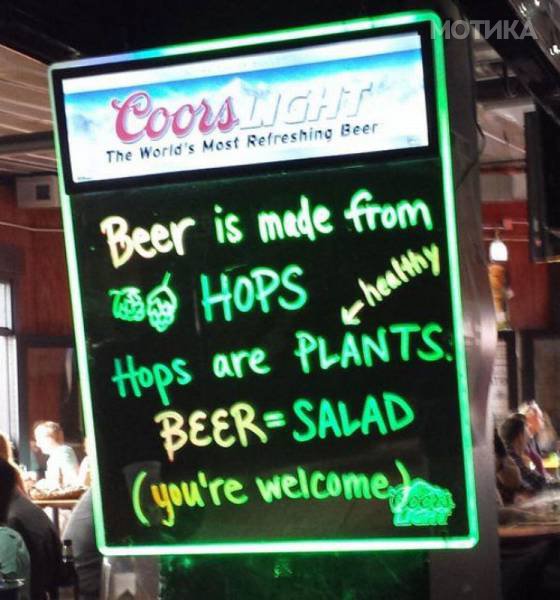 МОТИКА
Coors LIGHT
The World's Most Refreshing Beer
Beer is made from
HOPS
healthy
Hops are PLANTS.
BEER=SALAD
(you're welcome)
Coors
LIGHT